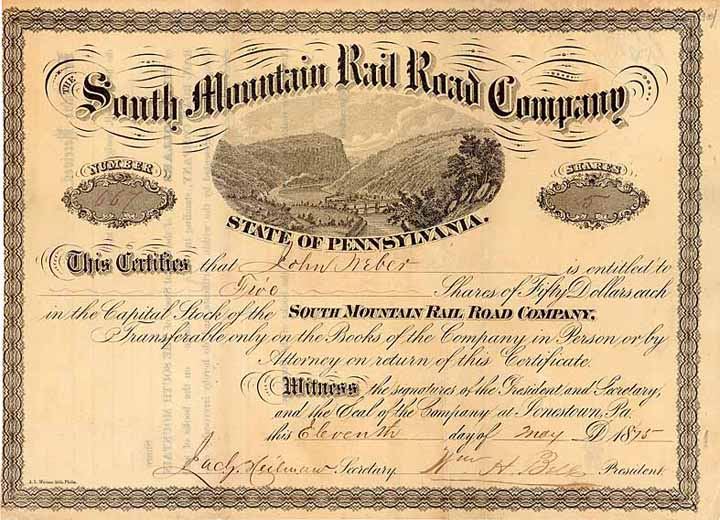 THE South Mountain Rail Road Company
NUMBER
667
SHARES
5
STATE OF PENNSYLVANIA.
This Certifies that John Weber is entitled to
Five Shares of Fifty Dollars each
in the Capital Stock of the SOUTH MOUNTAIN RAIL ROAD COMPANY,
Transferable only on the Books of the Company, in Person or by
Attorney on return of this Certificate.
Witness the signatures of the President and Secretary,
and the Seal of the Company at Jonestown, Pa.
this Eleventh day of May AD 1875
Secretary. Wm H. President.